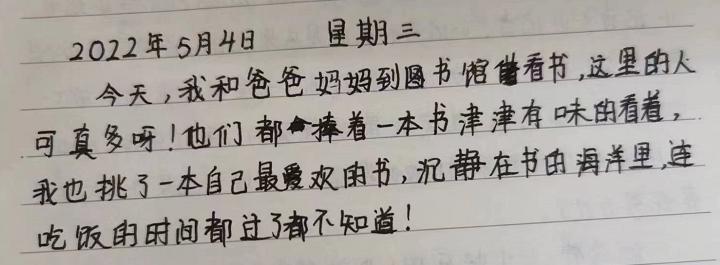 2022年5月4日 星期三
今天,我和爸爸妈妈到图书馆看书,这里的人
可真多呀!他们都捧着一本书津津有味的看着,
我也挑了一本自己最爱欢的书,沉静在书的海洋里,连
吃饭的时间都过了都不知道!